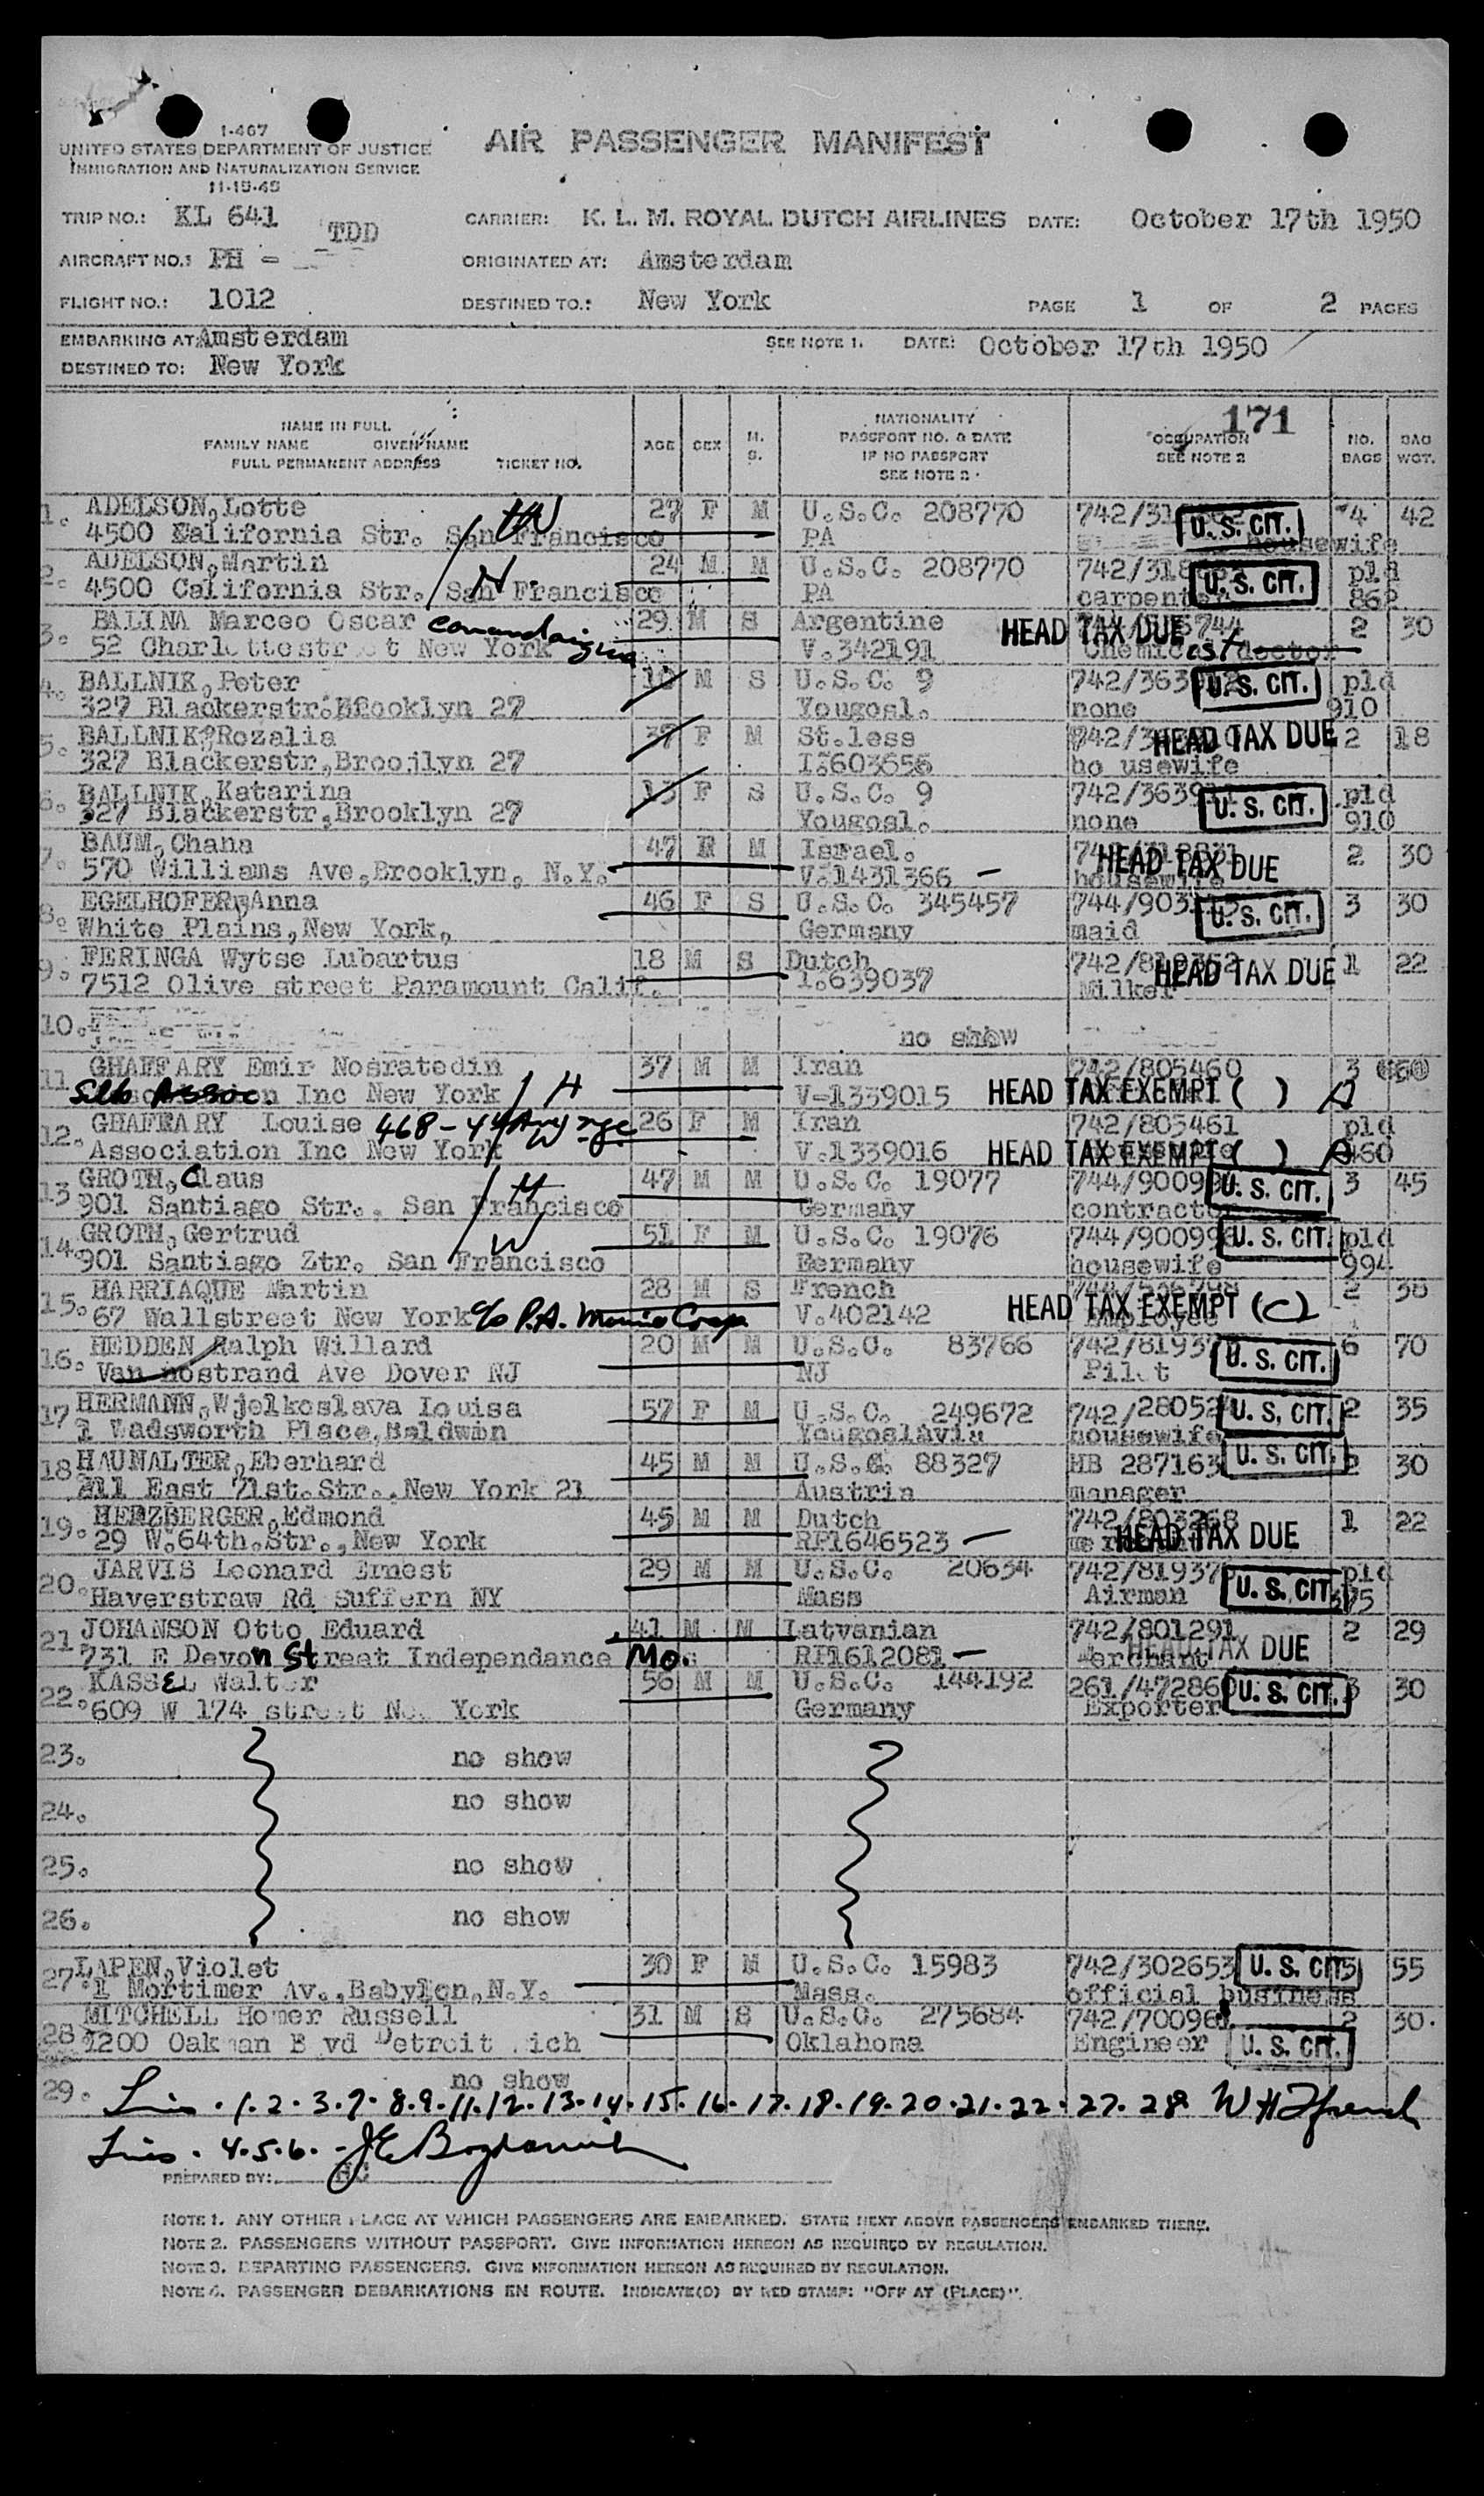 I-467
UNITED STATES DEPARTMENT OF JUSTICE
IMMIGRATION AND NATURALIZATION SERVICE
11-15-45
AIR PASSENGER MANIFEST
TRIP NO.: KL 641 CARRIER: K. L. M. ROYAL DUTCH AIRLINES DATE: October 17th 1950
TDD
AIRCRAFT NO.: PH - ORIGINATED AT: Amsterdam
FLIGHT NO.: 1012 DESTINED TO.: New York PAGE 1 OF 2 PAGES
EMBARKING AT: Amsterdam SEE NOTE 1. DATE: October 17th 1950
DESTINED TO: New York
171
NAME IN FULL
FAMILY NAME GIVEN NAME
FULL PERMANENT ADDRESS TICKET NO.
AGE SEX M. S.
NATIONALITY
PASSPORT NO. & DATE
IF NO PASSPORT
SEE NOTE 2
OCCUPATION
SEE NOTE 2
NO. BAGS BAG WGT.
1. ADELSON, Lotte 27 F M U.S.C. 208770 U. S. CIT. 4 42
4500 California Str. San Francisco PA housewife
2. ADELSON, Martin 24 M M U.S.C. 208770 U. S. CIT. pld
4500 California Str. San Francisco PA carpenter 862
3. BALINA Marceo Oscar 29 M S Argentine HEAD TAX DUE 2 30
52 New York V.342191
4. BALLNIK, Peter 10 M S U.S.C. 9 U. S. CIT. pld
327 Blackerstr. Brooklyn 27 Yougosl. none 910
5. BALLNIK, Rozalia 37 F M St.less HEAD TAX DUE 2 18
327 Blackerstr, Broojlyn 27 I.603656 ho usewife
6. BALLNIK, Katarina 13 F S U.S.C. 9 U. S. CIT. pld
327 Blackerstr, Brooklyn 27 Yougosl. none 910
7. BAUM, Chana 47 F M Israel. HEAD TAX DUE 2 30
570 Williams Ave, Brooklyn, N.Y. V.1431366 housewife
8. EGELHOFER, Anna 46 F S U.S.C. 345457 U. S. CIT. 3 30
White Plains, New York, Germany maid
9. FERINGA Wytse Lubartus 18 M S Dutch HEAD TAX DUE 1 22
7512 Olive street Paramount Calif. I.639037 Milker
10. no show
11 GHAFFARY Emir Nosratedin 37 M M Iran 742/805460 3
Inc New York H V-1339015 HEAD TAX EXEMPT ( ) A
12. GHAFFARY Louise 26 F M Iran 742/805461 pld
Association Inc New York W V.1339016 HEAD TAX EXEMPT ( ) A 460
13 GROTH, Claus 47 M M U.S.C. 19077 U. S. CIT. 3 45
901 Santiago Str., San Francisco H Germany contractor
14. GROTH, Gertrud 51 F M U.S.C. 19076 U. S. CIT. pld
901 Santiago Ztr. San Francisco W Eermany housewife 994
15. HARRIAQUE Martin 28 M S French 2 30
67 Wallstreet New York c/o P.A. V.402142 HEAD TAX EXEMPT (C)
16. HEDDEN Ralph Willard 20 M M U.S.C. 83766 U. S. CIT. 6 70
Van nostrand Ave Dover NJ NJ Pilot
17 HERMANN, Wjelkoslava Louisa 57 F M U.S.C. 249672 U. S. CIT. 2 35
1 Wadsworth Place, Baldwin Yougoslavia housewife
18 HAUNALTER, Eberhard 45 M M U.S.C. 88327 HB 287163 U. S. CIT. 2 30
211 East 71st.Str., New York 21 Austria manager
19. HERZBERGER, Edmond 45 M M Dutch 742/803268 1 22
29 W.64th.Str., New York RP1646523 HEAD TAX DUE
20. JARVIS Leonard Ernest 29 M M U.S.C. 20634 pld
Haverstraw Rd Suffern NY Mass Airman U. S. CIT. 375
21 JOHANSON Otto Eduard 41 M M Latvanian 742/801291 2 29
731 E Devon Street Independance Mo. RP1612081 HEAD TAX DUE
22. KASSEL Walter 56 M M U.S.C. 144192 U. S. CIT. 3 30
609 W 174 street New York Germany Exporter
23. no show
24. no show
25. no show
26. no show
27. LAPEN, Violet 30 F M U.S.C. 15983 742/302653 U. S. CIT. 5 55
1 Mortimer Av., Babylon, N.Y. Mass. official business
28 MITCHELL Homer Russell 31 M S U.S.C. 275684 742/700961 2 30.
Oakman Detroit Oklahoma Engineer U. S. CIT.
29. no show
1. 2. 3. 7. 8. 9. 11. 12. 13. 14. 15. 16. 17. 18. 19. 20. 21. 22. 27. 28
4. 5. 6.
PREPARED BY:
NOTE 1. ANY OTHER PLACE AT WHICH PASSENGERS ARE EMBARKED. STATE NEXT ABOVE PASSENGERS EMBARKED THERE.
NOTE 2. PASSENGERS WITHOUT PASSPORT. GIVE INFORMATION HEREON AS REQUIRED BY REGULATION.
NOTE 3. DEPARTING PASSENGERS. GIVE INFORMATION HEREON AS REQUIRED BY REGULATION.
NOTE 4. PASSENGER DEBARKATIONS EN ROUTE. INDICATE(D) BY RED STAMP: "OFF AT (PLACE)".